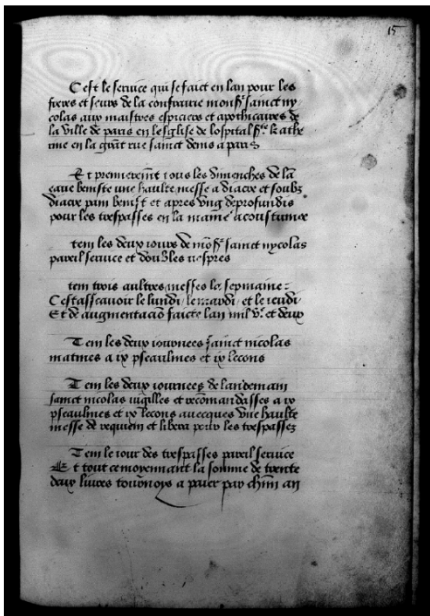 15
Cest le seruice qui se faict en lan pour les
freres et seurs de la confrairie monsr sainct ny
colas aux maistres espiciers et apothicaires de
la ville de paris en leglise de lospital ste kathe
rine en la grāt rue sainct denis a paris
Et premieremēt tous les dimenches de la
eaue benste une haulte messe a diacre et soubz
diacre pain benist et apres vng deprofundis
pour les trespasses en la maniē acoustumee
tem les deux iours de mōsr sainct nycolas
pareil seruice et doubles vespres
tem trois aultres messes le sepmaine
Cestassauoir le lundi le mardi et le ieudi
Et de augmentaciō faicte lan mil vc et deux
Tem les deux iournees sainct nicolas
matines a ix pseaulmes et ix lecons
Tem les deux iournees de landemain
sainct nicolas vigilles et recomandasses a ix
pseaulmes et ix lecons auecques vne haulte
messe de requiem et libera pour les trespassez
Tem le iour des trespasses pareil seruice
Et tout ce moyennant la somme de trente
deux liures tournoys a paier par chūn an